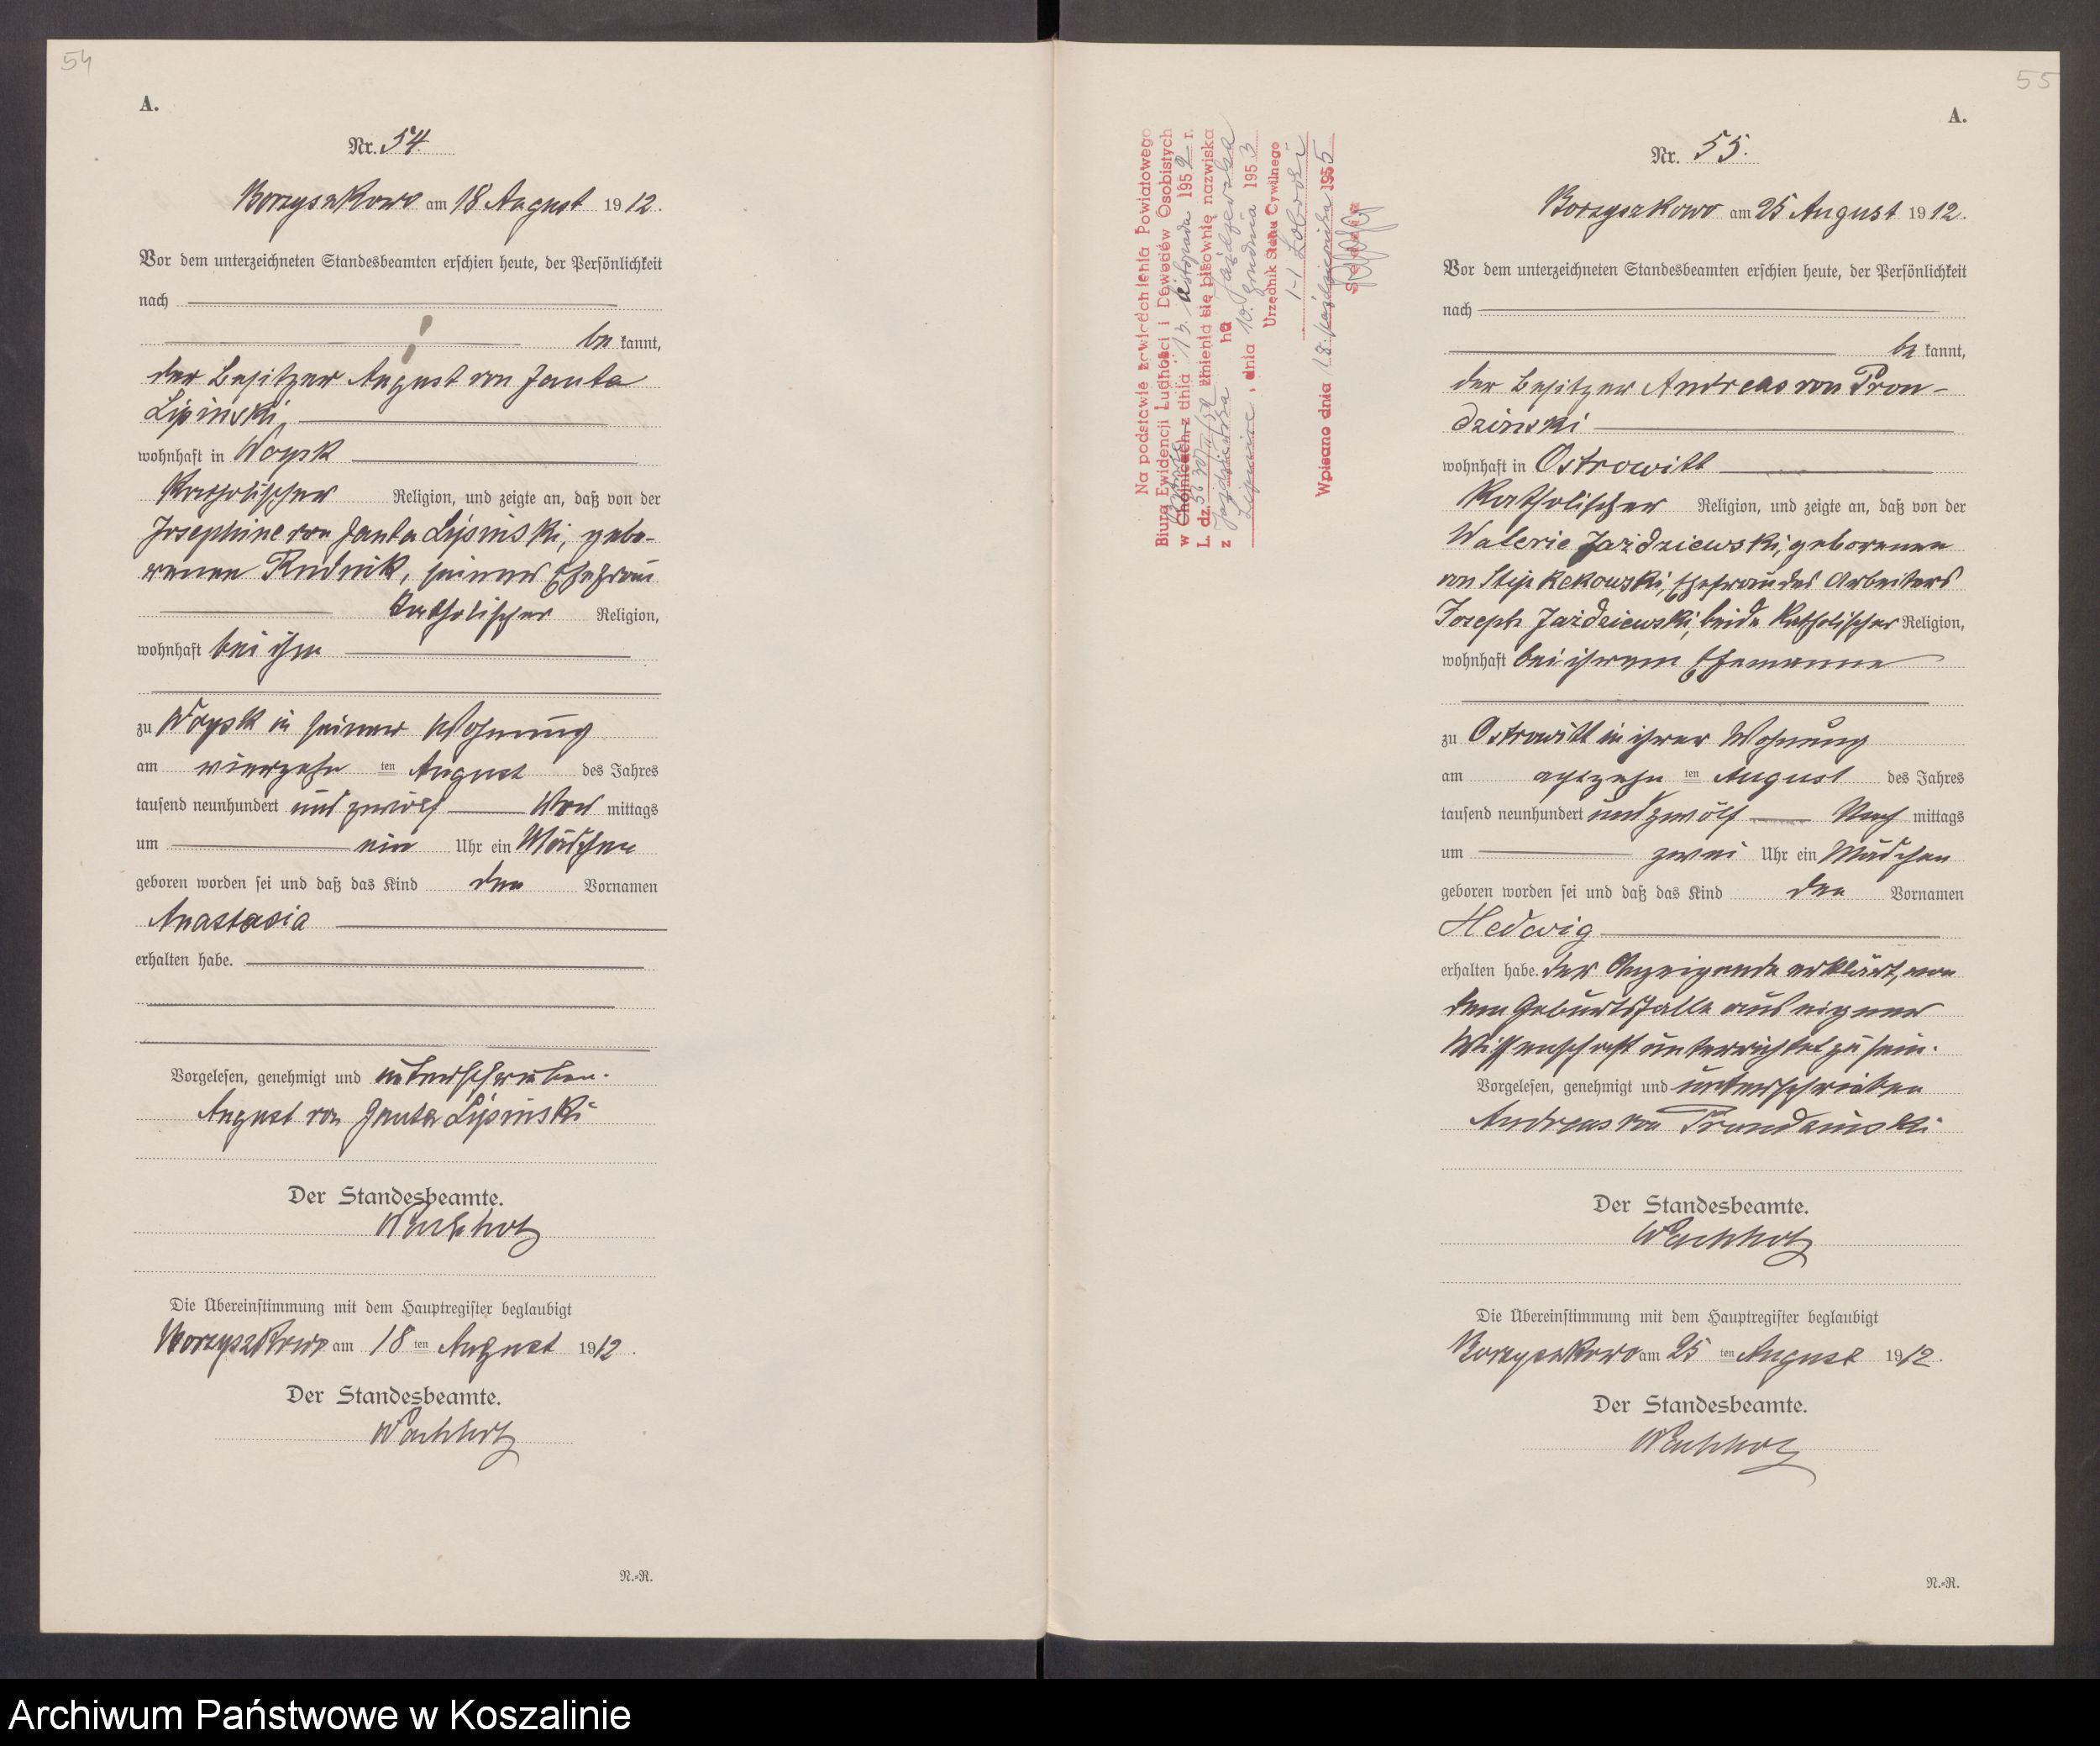 54
A.
Nr. 54.
Borzyszkowo am 18 August 1912.
Vor dem unterzeichneten Standesbeamten erschien heute, der Persönlichkeit
nach
be kannt,
der Besitzer August von Janta
Lipinski,
wohnhaft in Woysk
katholischer Religion, und zeigte an, daß von der
Josephine von Janta Lipinski, gebo-
renen Rudnik, seiner Ehefrau
katholischer Religion,
wohnhaft bei ihm
zu Woysk in seiner Wohnung
am vierzehn ten August des Jahres
tausend neunhundert und zwölf Vor mittags
um ein Uhr ein Mädchen
geboren worden sei und daß das Kind den Vornamen
Anastasia
erhalten habe.
Vorgelesen, genehmigt und unterschrieben.
August von Janta Lipinski
Der Standesbeamte.
Wachholz
Die Übereinstimmung mit dem Hauptregister beglaubigt
Borzyszkowo am 18 ten August 1912.
Der Standesbeamte.
Wachholz
N.=R.
Na podstawie zawiadomienia Powiatowego
Biura Ewidencji Ludności i Dowodów Osobistych
w Chojnicach z dnia 13. listopada 1952 r.
L. dz. zmienia się pisownię nazwiska
z Jazdziewska na Jażdżewska
Lipnica, dnia 10. grudnia 1953
Urzędnik Stanu Cywilnego
Wpisano dnia 18. października 1955
55
A.
Nr. 55.
Borzyszkowo am 25 August 1912.
Vor dem unterzeichneten Standesbeamten erschien heute, der Persönlichkeit
nach
be kannt,
der Besitzer Andreas von Pron-
dzinski
wohnhaft in Ostrowitt
katholischer Religion, und zeigte an, daß von der
Valerie Jazdziewski, geborenen
von Stip Rekowski, Ehefrau des Arbeiters
Joseph Jazdziewski, beide katholischer Religion,
wohnhaft bei ihrem Ehemanne
zu Ostrowitt in ihrer Wohnung
am achtzehn ten August des Jahres
tausend neunhundert und zwölf Nach mittags
um zwei Uhr ein Mädchen
geboren worden sei und daß das Kind den Vornamen
Hedwig
erhalten habe. Der Anzeigende erklärt, von
dem Geburtsfalle aus eigener
Wissenschaft unterrichtet zu sein.
Vorgelesen, genehmigt und unterschrieben
Andreas von Prondzinski
Der Standesbeamte.
Wachholz
Die Übereinstimmung mit dem Hauptregister beglaubigt
Borzyszkowo am 25 ten August 1912.
Der Standesbeamte.
Wachholz
N.=R.
Archiwum Państwowe w Koszalinie